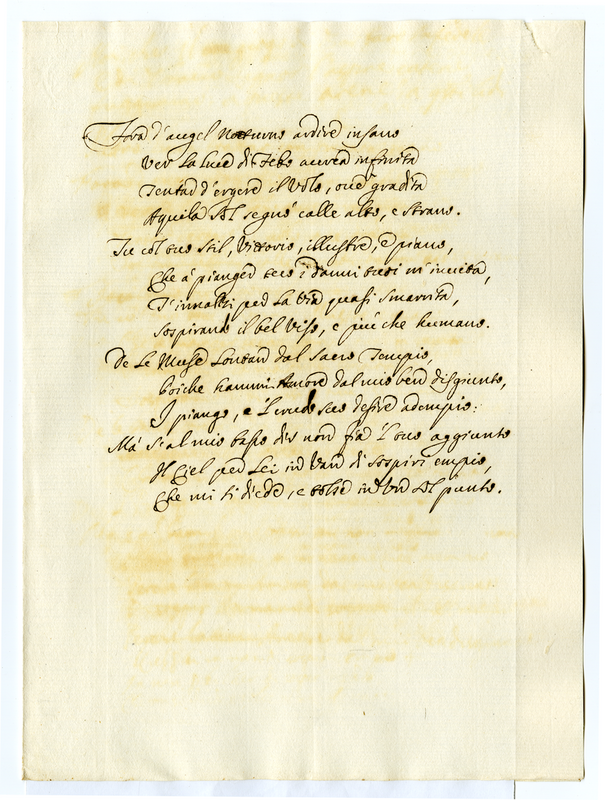 Fora d'augel notturno ardire insano
Ver la luce di Febo aurea infinita
Tentar d'ergere il volo, ove gradita
Aquila sol segnò calle alto, e strano.
Tu col tuo stil, Vittorio, illustre, e piano,
Che a' pianger teco i danni tuoi m'invita,
T'innalzi per la via quasi smarrita,
Sospirando il bel viso, e più che humano.
De le Muse lontan dal sacro Tempio,
Poiche hammi Amore dal mio ben disgiunto,
I piango, e 'l crudo suo desire adempio:
Mà s'al mio basso dir non fia 'l tuo aggiunto
Il Ciel per lei in van di sospiri empio,
Che mi si diede, e tolse in un sol punto.